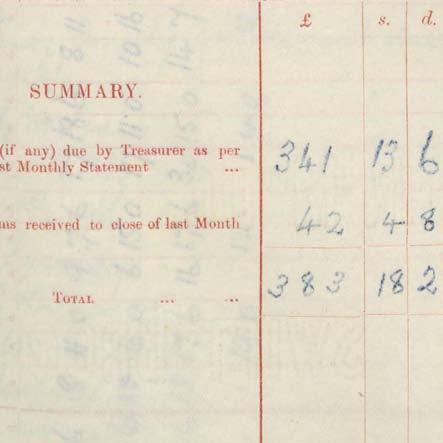 £ s. d.
SUMMARY.
(if any) due by Treasurer as per
st Monthly Statement ... 341 13 6
ms received to close of last Month 42 4 8
TOTAL ... ... 383 18 2